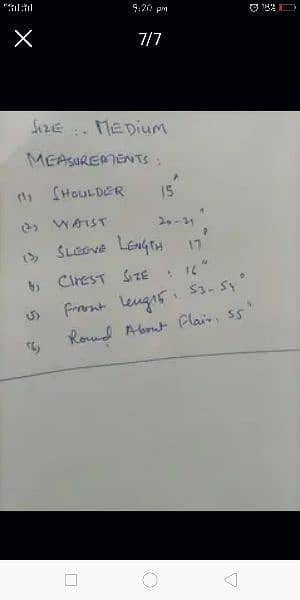 9:20 pm
7/7
SIZE :. MEDIUM
MEASUREMENTS :
(1) SHOULDER 15"
(2) WAIST 20-21"
(3) SLEEVE LENGTH 17"
4) CHEST SIZE : 16"
(5) Front length : 53-54"
(6) Round About Flair. 55"